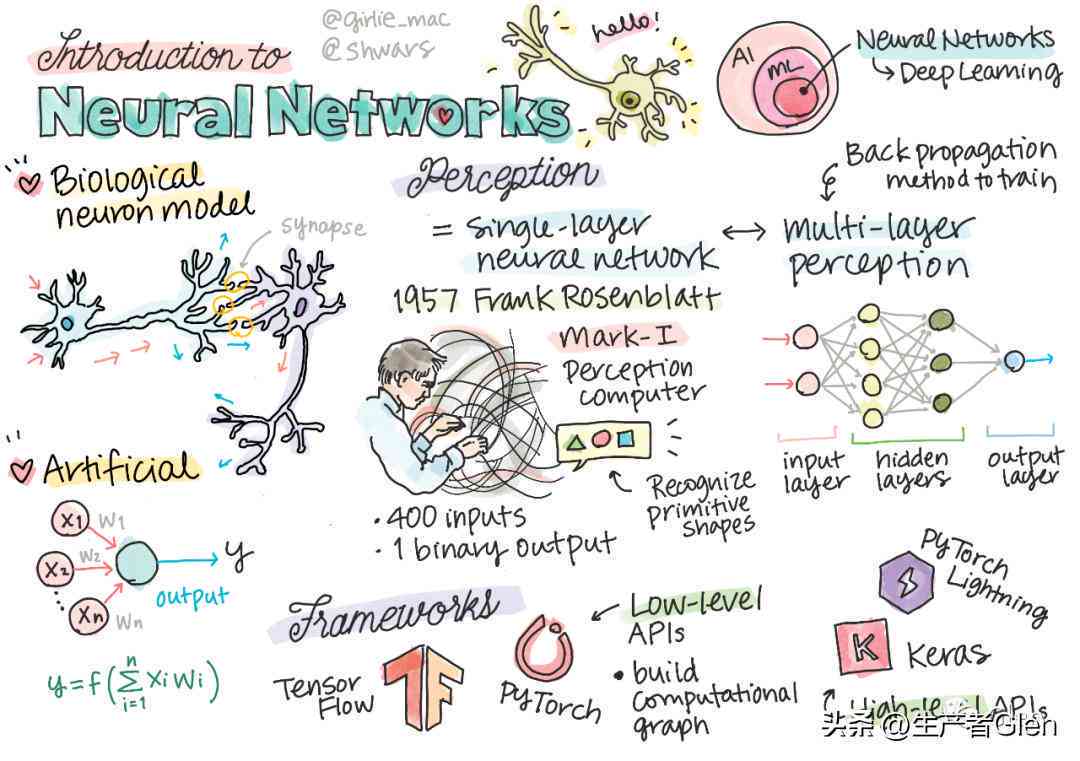 @girlie_mac
@shwars
Introduction to
Neural Networks
hello!
AI
ML
Neural Networks
Deep Learning
Biological
neuron model
synapse
Perception
= single-layer
neural network
1957 Frank Rosenblatt
Mark-I
Perception
computer
Recognize
primitive
shapes
• 400 inputs
• 1 binary output
Back propagation
method to train
multi-layer
perception
input
layer
hidden
layers
output
layer
Artificial
X1
W1
X2
W2
Xn
Wn
y
output
y = f(∑ Xi Wi)
n
i=1
Frameworks
Tensor
Flow
PyTorch
Low-level
APIs
• build
computational
graph
PyTorch
Lightning
K
Keras
High-level APIs
头条 @生产者Glen